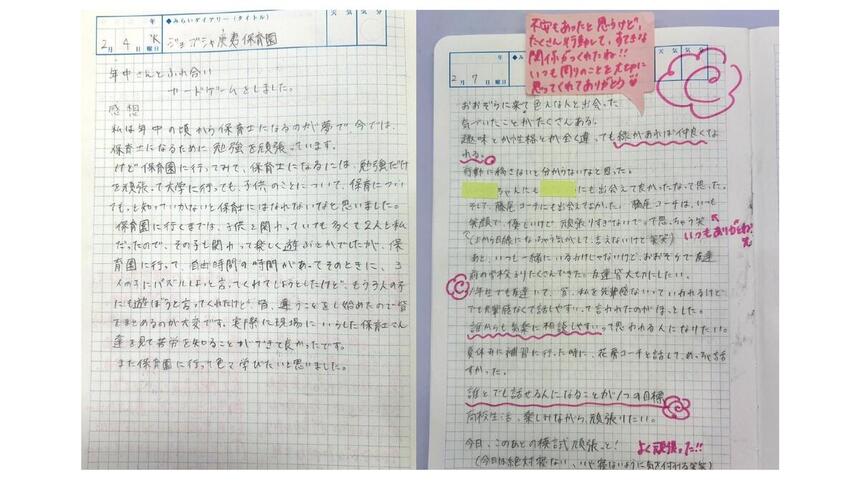 年 ◆みらいダイアリー(タイトル) 天気 気分
2月 4日 水曜日 ジョブシャ庚君保育園
年中さんとふれ合い
カードゲームをしました。
感想
私は年中の頃から保育士になるのが夢で今では、
保育士になるために勉強を頑張っています。
けど保育園に行ってみて、保育士になるには、勉強だけ
を頑張って大学に行っても、子供のことについて、保育につい
てもっと知っていかないと保育士にはなれないなと思いました。
保育園に行くまでは、子供と関わっていても多くて2人と私
だったので、その子も関わって楽しく遊ぶとかでしたが、保
育園に行って、自由時間の時間があってそのときに、3
人の子にパズルしよって言ってくれてしようとしたけど、もう3人の子
にも遊ぼうと言ってくれたけど、皆、違うことをし始めたので皆
をまとめるのが大変です。実際に現場にいらした保育士さん
達を見て苦労を知ることができて良かったです。
また保育園に行って色々学びたいと思いました。
不安もあったと思うけど、
たくさん行動して、すてきな
関係がつくれたね!!
いつも周りのことを大切に
思ってくれてありがとう
年 ◆みらい 天気 気分
2月 7日 曜日
おおぞらに来て色んな人と出会った
気づいたことがたくさんある。
趣味とか性格とか全く違っても縁があれば仲良くな
れる。
行動に移さないと分からないなと思った。
ちゃんにも にも出会えて良かったなって思った。
そして、藤尾コーチにも出会えてよかた。藤尾コーチは、いつも
笑顔で、優しいけど頑張りすぎないでって思っちゃう笑
(上から目線になっちゃう気がして、言えないけど笑笑)
いつもありがとね!
あと、いつも一緒にいるわけじゃないけど、おおぞらで友達
前の学校よりたくさんできた。友達皆大切にしたい。
1年生でも友達いて、皆、私を先輩感ないっていわれるけど、
でも先輩感なくて話しやすいって言われたのがほっとした。
誰からも気楽に相談しやすいって思われる人になりたい。
夏休みに補習に行った時に、花房コーチと話して、めっちゃ話し
やすかった。
誰とでも話せる人になることが1つの目標
高校生活、楽しみながら、頑張りたい。
今日、このあとの模試頑張っと!
よく頑張った!!
(今日は絶対寝ない、いや寝ないように気を付ける笑笑)